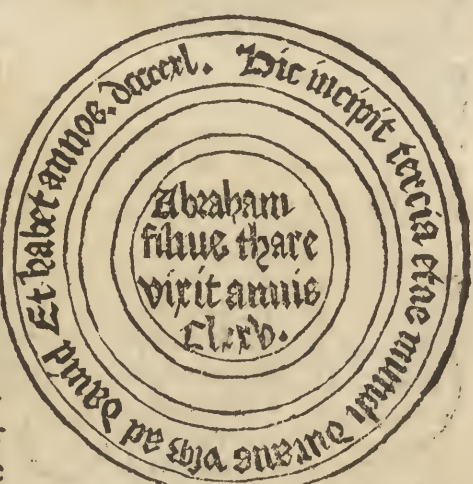 Hic incipit tercia etas mundi durans vsqꝫ ad Dauid Et habet annos. dccccxl.
Abraham
filius thare
vixit annis
Clxxv.